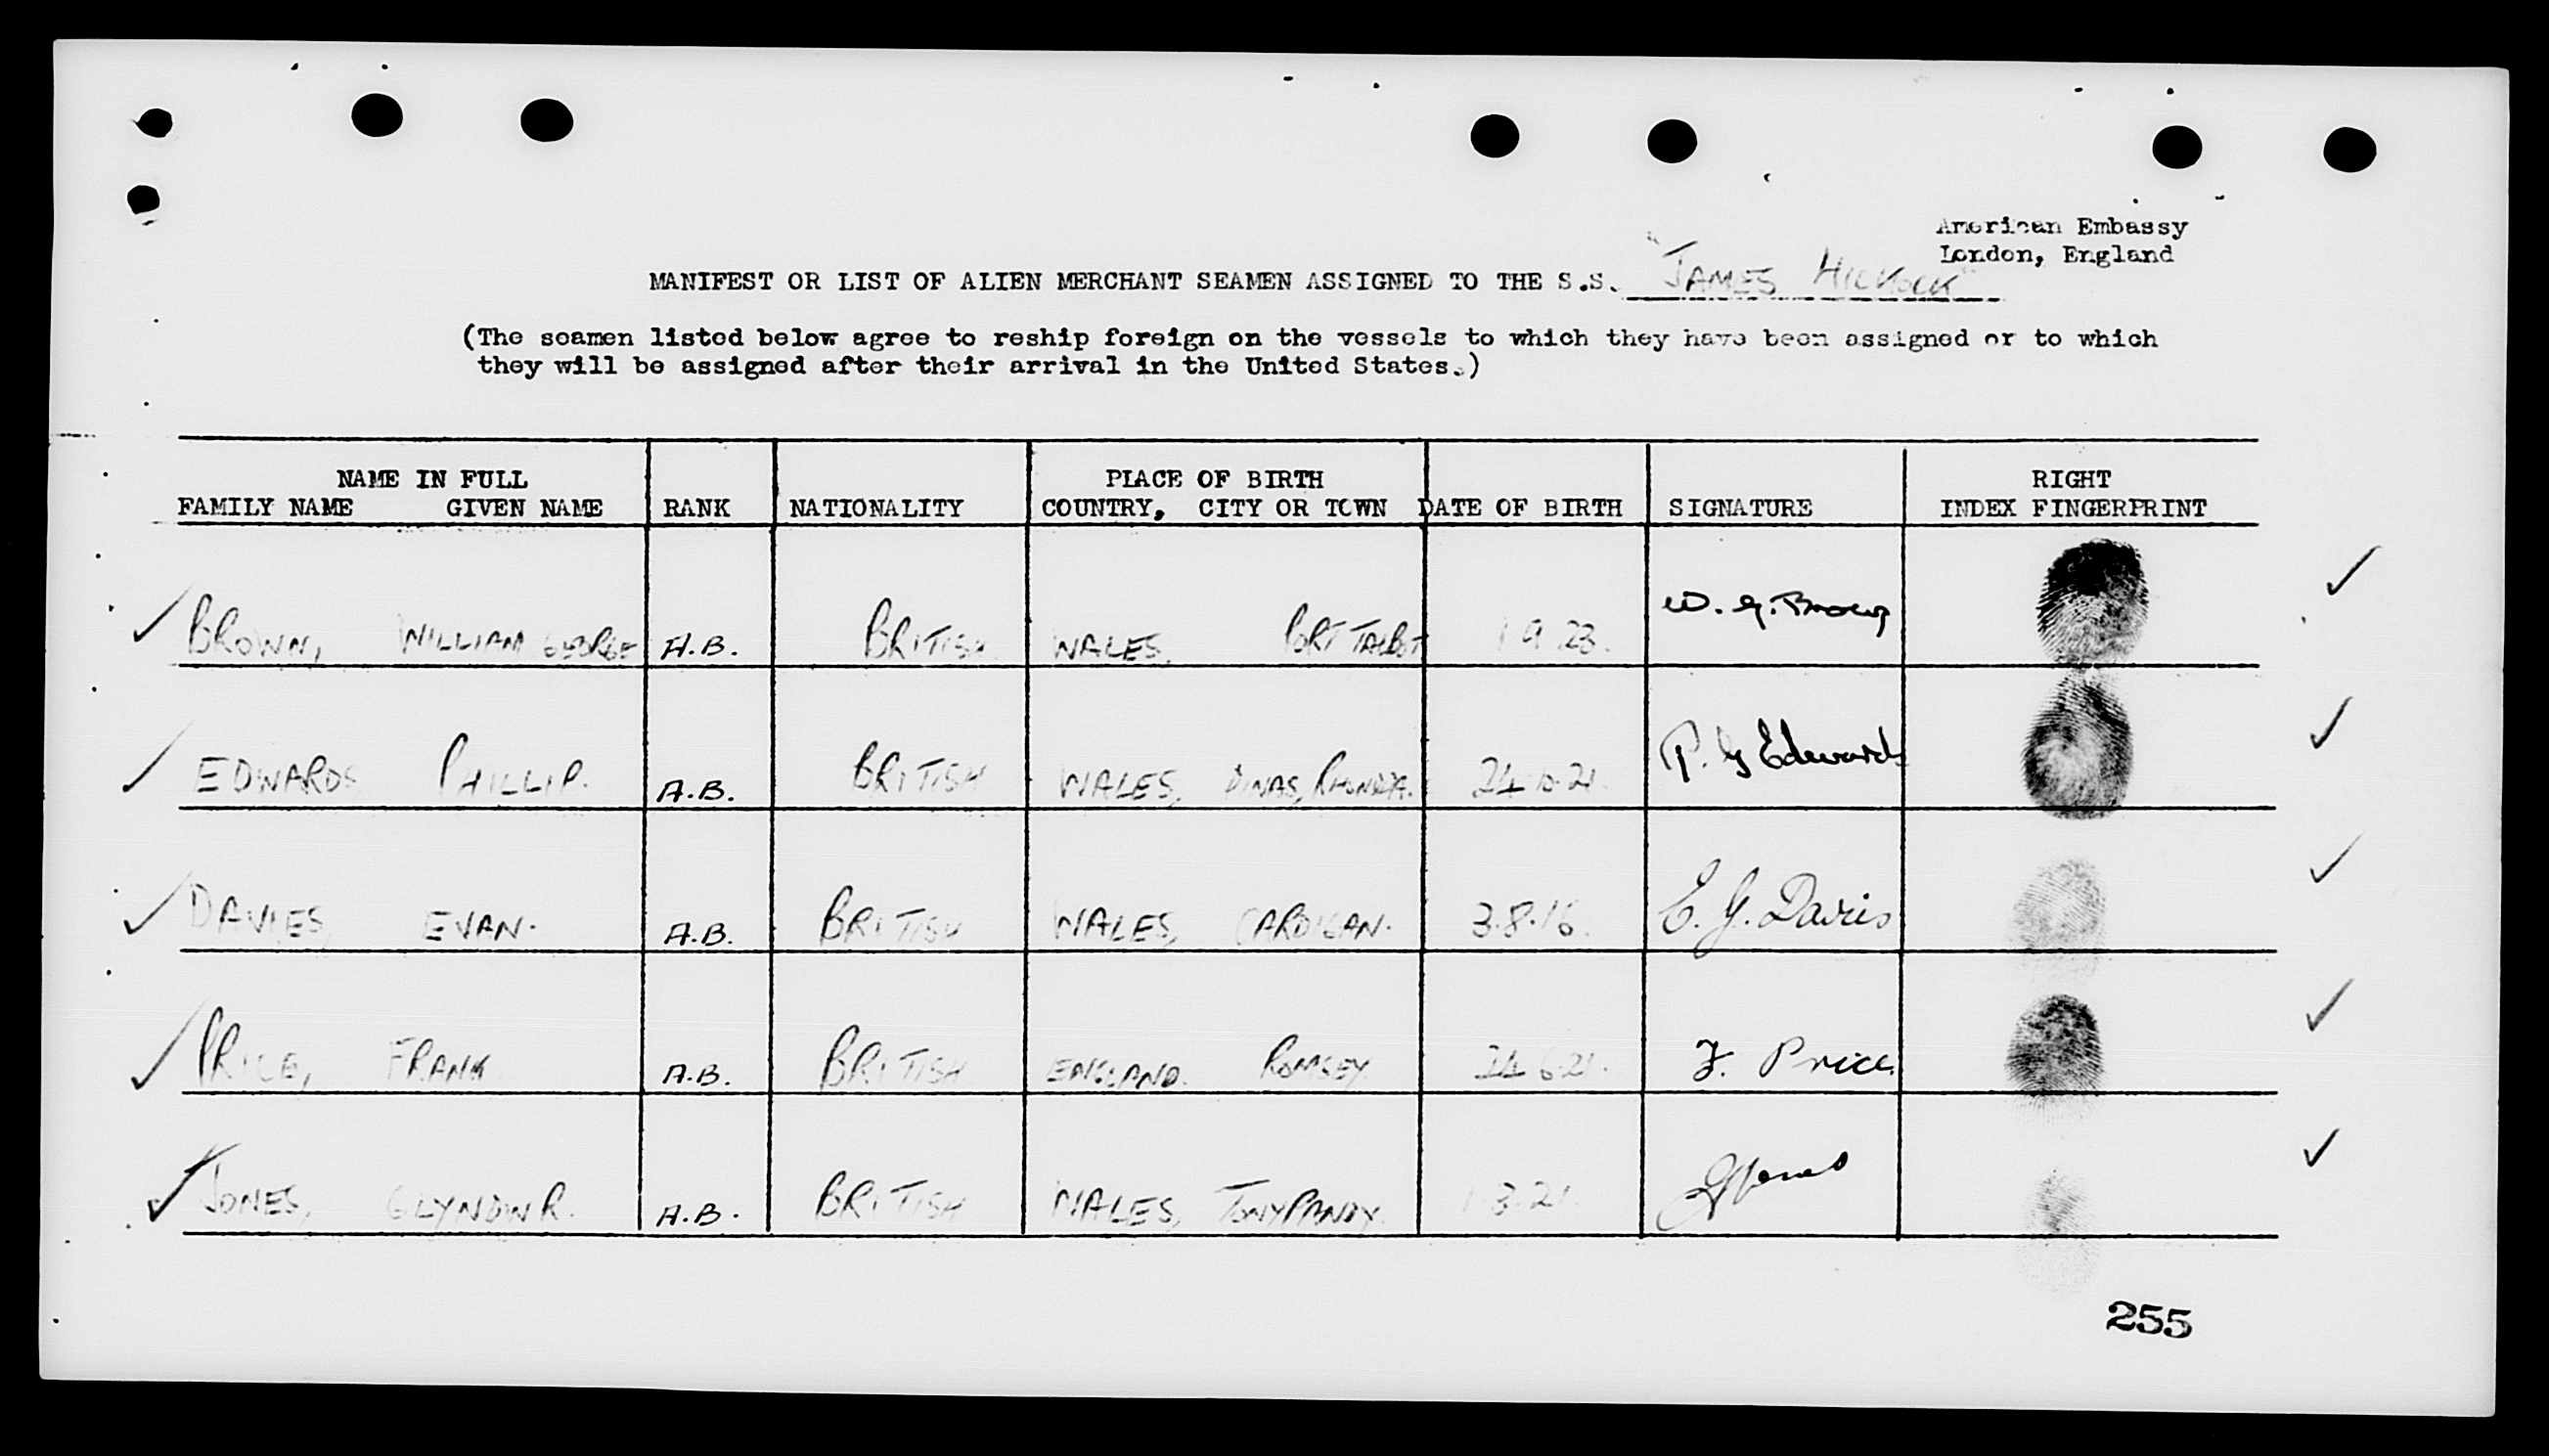 American Embassy
London, England
MANIFEST OR LIST OF ALIEN MERCHANT SEAMEN ASSIGNED TO THE S.S. "JAMES HICKOCK"
(The seamen listed below agree to reship foreign on the vessels to which they have been assigned or to which
they will be assigned after their arrival in the United States.)
NAME IN FULL PLACE OF BIRTH RIGHT
FAMILY NAME GIVEN NAME RANK NATIONALITY COUNTRY, CITY OR TOWN DATE OF BIRTH SIGNATURE INDEX FINGERPRINT
BROWN, WILLIAM GEORGE A.B. BRITISH WALES, PORT TALBOT 1.9.23. W. G. Brown
EDWARDS PHILLIP. A.B. BRITISH WALES, DINAS, RHONDDA. 24.10.21. P. G Edwards
DAVIES, EVAN. A.B. BRITISH WALES, CARDIGAN. 3.8.16. E. J. Davies
PRICE, FRANK A.B. BRITISH ENGLAND. ROMSEY. 24.6.21. F. Price
JONES, GLYNDWR. A.B. BRITISH WALES, TONYPANDY. 1.3.21. G Jones
255